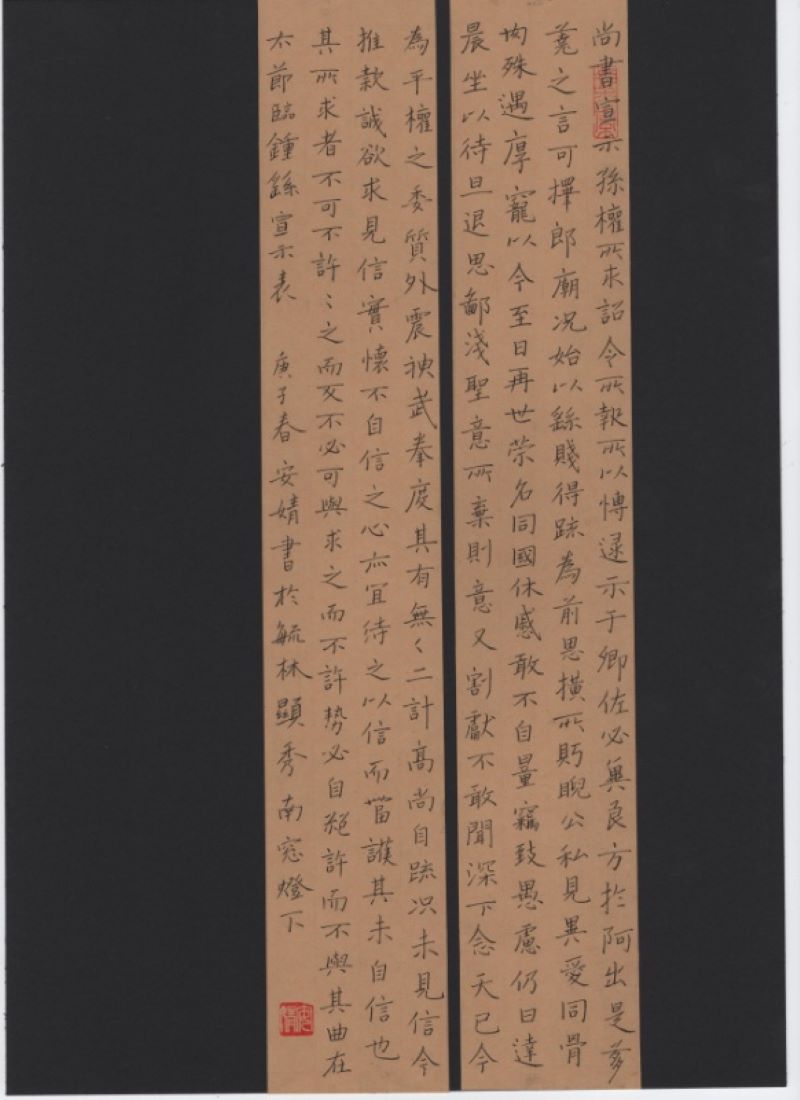 尚書宣示孫權所求詔令所報所以博逮示于卿佐必兾良方於阿出是芻
蕘之言可擇郎廟况始以繇賤得踈為前恩橫所眄睨公私見異愛同骨
肉殊遇厚寵以今至日再世榮名同國休慼敢不自量竊致愚慮仍日達
晨坐以待旦退思鄙淺聖意所棄則意又割獻不敢聞深下念天已今
為平權之委質外震神武奉度其有無〻二計高尚自踈况未見信今
推款誠欲求見信實懷不自信之心亦宜待之以信而當護其未自信也
其所求者不可不許〻之而反不必可與求之而不許勢必自絕許而不與其曲在
太節臨鍾繇宣示表 庚子春安婧書於毓林顯秀南窓燈下